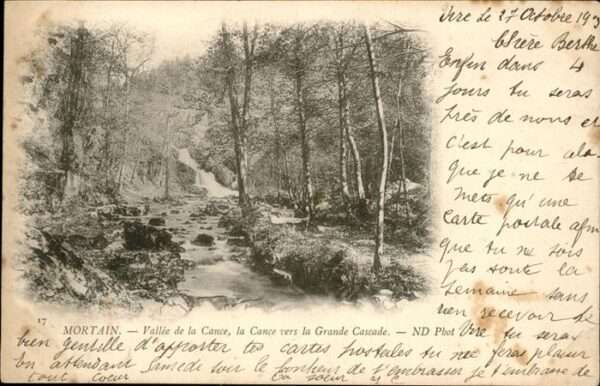 Vire Le 27 Octobre 190
Chère Berthe
Enfin dans 4
jours tu seras
près de nous et
c'est pour cela
que je ne te
mets qu'une
carte postale afin
que tu ne sois
pas toute la
semaine sans
rien recevoir de
Vire tu seras
17
MORTAIN. — Vallée de la Cance, la Cance vers la Grande Cascade. — ND Phot
bien gentille d'apporter tes cartes postales tu me feras plaisir
En attendant samedi soir le bonheur de t'embrasser je t'embrasse de
tout coeur Ta soeur